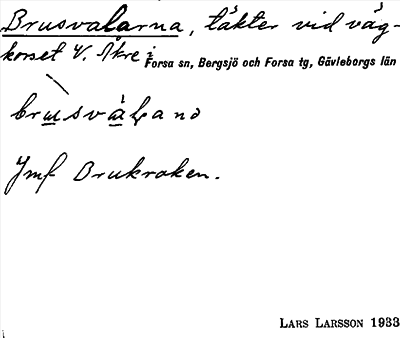 Brusvalarna, täkter vid väg-
korset V. Åkre i
Forsa sn, Bergsjö och Forsa tg, Gävleborgs län
Jmf Brukroken.
LARS LARSSON 1933